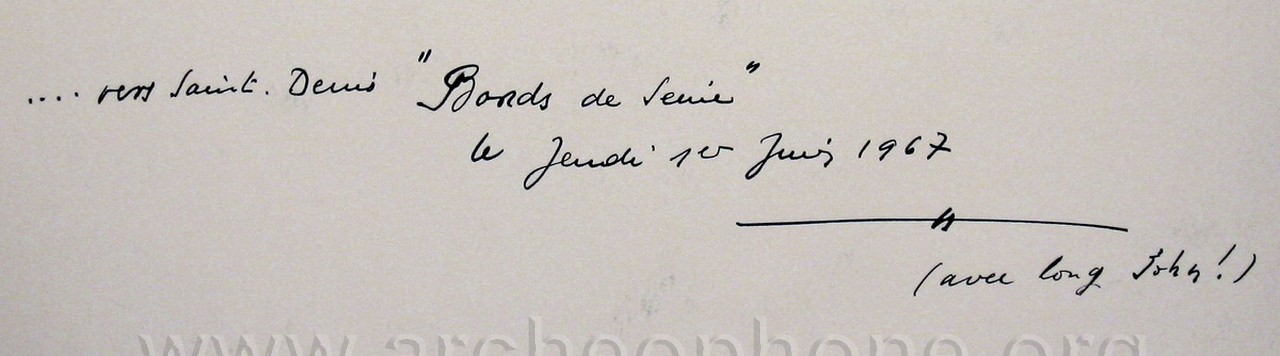 .... vers Saint. Denis "Bords de Seine"
le Jeudi 1er Juin 1967
(avec long John!)
www.archeophone.org